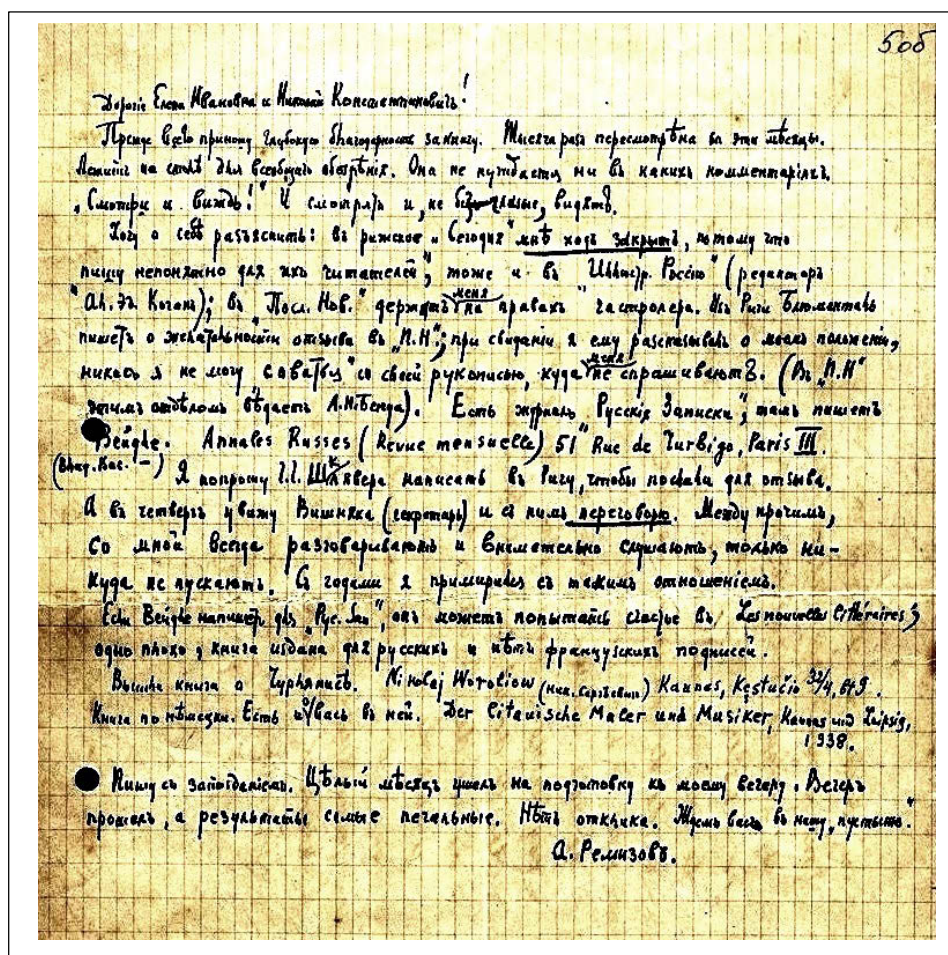 506
Дорогiе Елена Ивановна и Николай Константиновичъ!
Прежде всего приношу глубокую благодарность за книгу. Тысяча разъ пересмотрѣна за эти мѣсяцы.
Лежитъ на столѣ для всеобщаго обозрѣнiя. Она не нуждается ни въ какихъ комментарiяхъ.
„Смотри и виждь!“ И смотрятъ и, не безглазые, видятъ.
Хочу о себѣ разъяснить: въ рижское „Сегодня“ мнѣ ходъ закрытъ, потому что
„пишу непонятно для ихъ читателей“, тоже и въ „Иллюстр. Россiю“ (редакторъ
Ал. Эд. Коганъ); въ „Посл. Нов.“ держатъ меня на правахъ „гастролера. Изъ Риги Блюменталь
пишетъ о желательности отзыва въ „П.Н“; при свиданiи я ему разсказывалъ о моемъ положенiи,
никакъ я не могу „соваться“ со своей рукописью, куда меня не спрашиваютъ. (Въ „П.Н“
этимъ отдѣломъ вѣдаетъ А.Н.Бенуа). Есть журналъ „Русскiя Записки“, тамъ пишетъ
Вейдле. Annales Russes (Revue mensuelle) 51 Rue de Turbigo, Paris III.
(Влад. Вас. –) Я попрошу Г.Г. Шклявера написать въ Ригу, чтобы послали для отзыва.
А въ четвергъ увижу Вишняка (секретарь) и съ нимъ переговорю. Между прочимъ,
со мной всегда разговариваютъ и внимательно слушаютъ, только ни-
куда не пускаютъ. Съ годами я примирился съ такимъ отношенiемъ.
Если Вейдле напишетъ для „Рус. Зап“, онъ можетъ попытать счастье въ Les nouvelles littéraires;
одно плохо, книга издана для русскихъ и нѣтъ французскихъ подписей.
Вышла книга о Чурлянисѣ. Nikolaj Worobiow (Ник. Сергѣевич) Kaunas, Kęstučio 32/4,
Книга по нѣмецки. Есть и у васъ въ ней. Der Litauische Maler und Musiker, Kaunas und Leipzig,
1938.
Пишу съ запозданiемъ. Цѣлый мѣсяцъ ушелъ на подготовку къ моему вечеру. Вечеръ
прошелъ, а результаты самые печальные. Нѣтъ отклика. Ждемъ васъ въ нашу „пустыню“.
А. Ремизовъ.